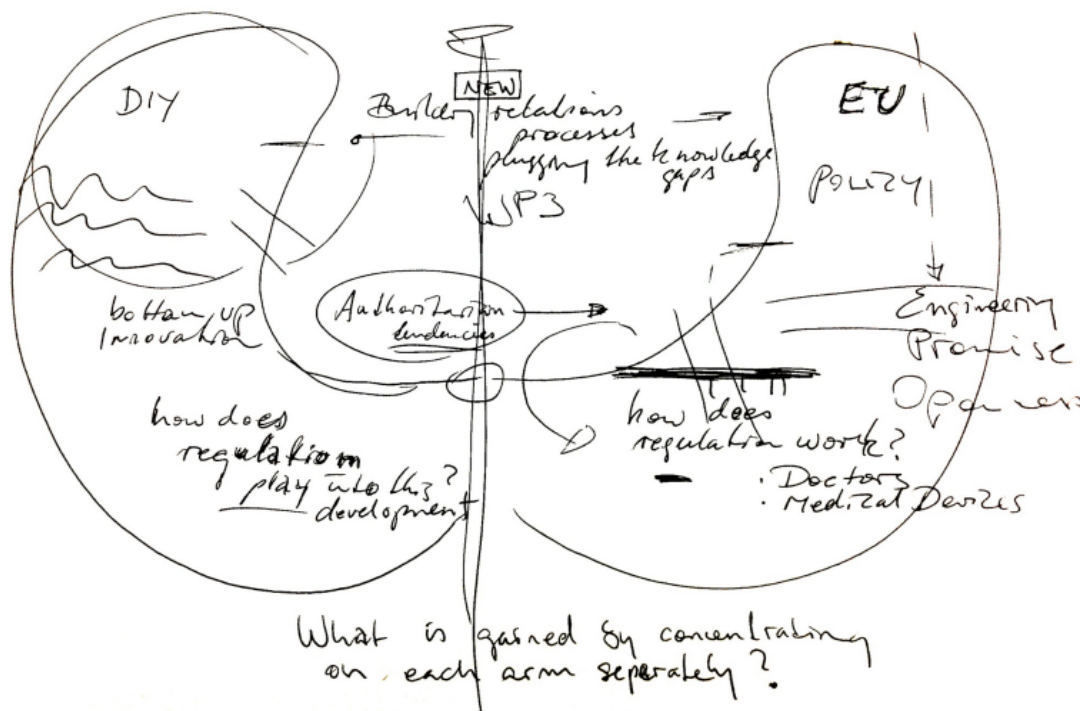 DIY
NEW
EU
Building relations
processes
plugging the knowledge
gaps
WP3
POLIZY
bottom up
Innovation
Authoritarian
tendencies
Engineering
Promise
Openness
how does
regulation
play into this?
development
how does
regulation work?
· Doctors
· Medical Devices
What is gained by concentrating
on each arm separately?